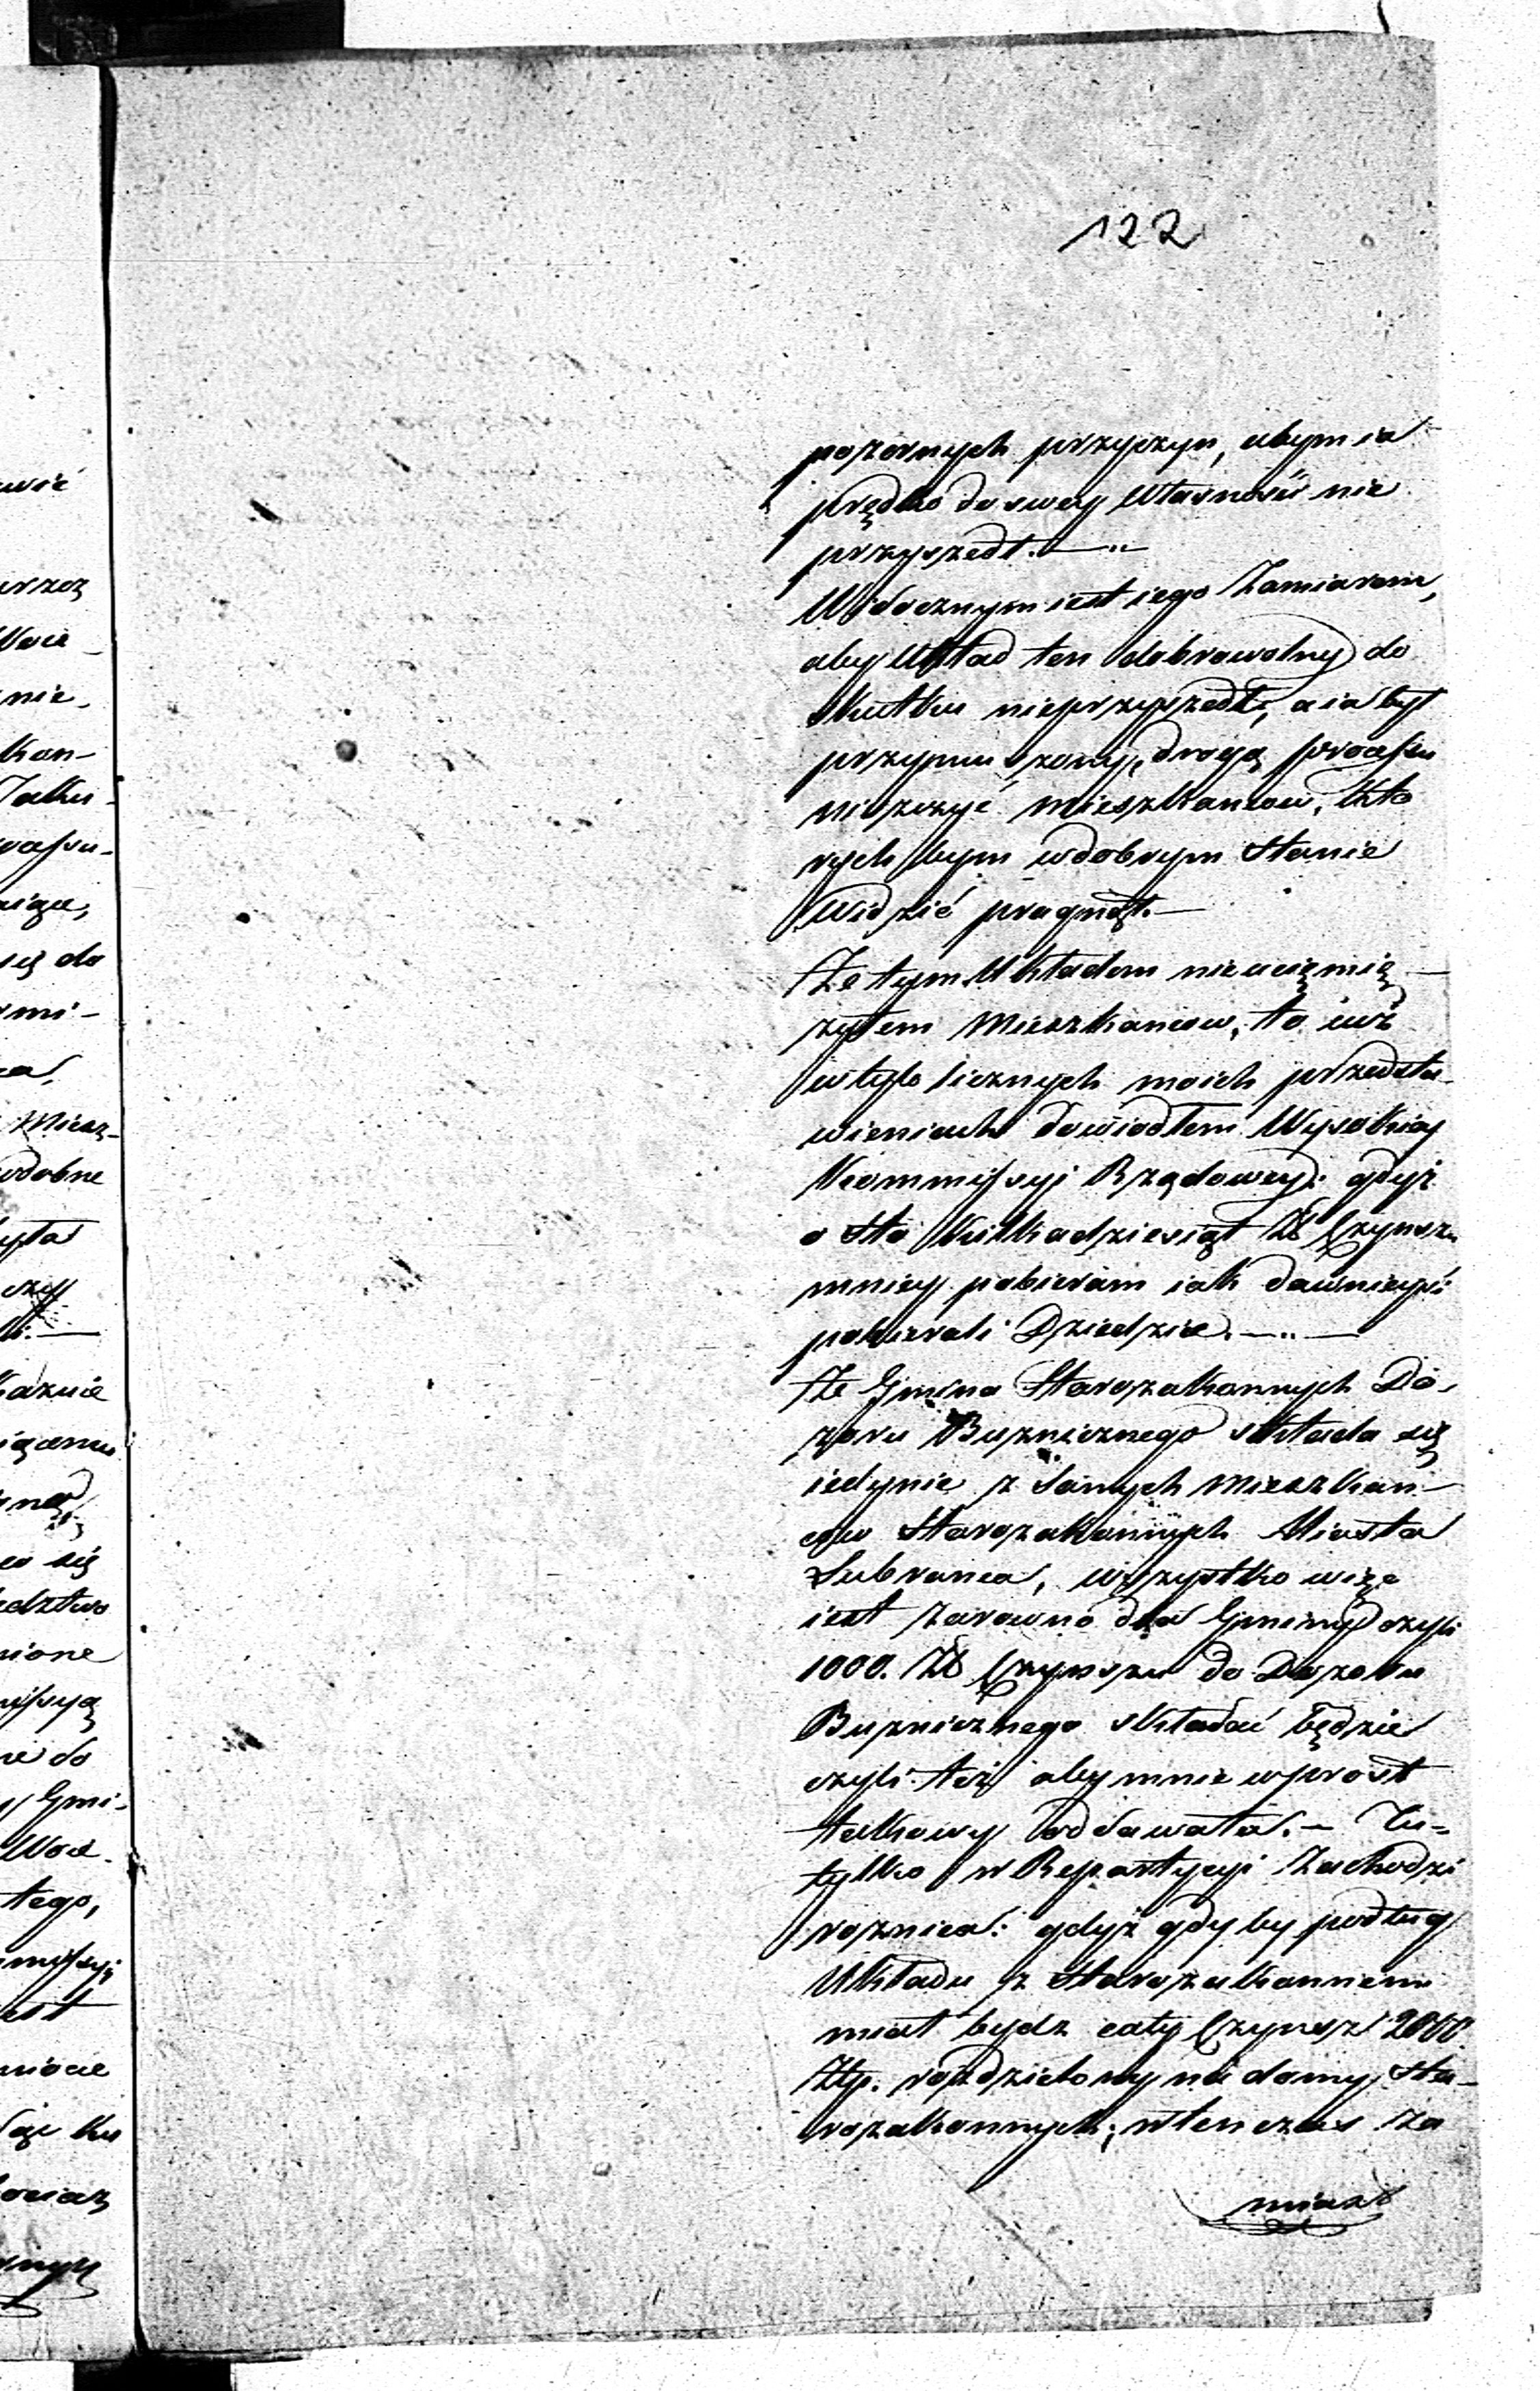 122
pozornych przyczyn, abym ia
prędko do swey Własności nie
przyszedł.—"—
Widocznym iest iego Zamiarem,
aby Układ ten dobrowolny do
Skutku nieprzyszedł, a ia był
przymuszony, drogą processu
niszczyć Mieszkancow, kto
rych bym w dobrym Stanie
widzieć pragnął.—
Ze tym Układem nieuciemię
żyłem Mieszkancow, to iuż
w tylo licznych moich przedsta-
wieniach dowiodłem Wysokiey
Kommissyi Rządowey: gdyż
o Sto kilkadziesiąt Zł Czynszu
mniey pobieram iak dawnieysi
pobierali Dziedzice.—"—
Że Gmina Starozakonnych Do-
zoru Bużnicznego składa się
iedynie z Samych Mieszkan-
cow Starozakonnych Miasta
Lubranca, wszystko więc
iest zarowno dla Gminy czyli
1000. Zł Czynszu do Dozoru
Bużnicznego składać będzie
czyli też aby mnie wprost
takowy oddawała.— Tu-
tylko w Repartycyi Zachodzi
roznica: gdyż gdyby podług
Układu z Starozakonnemi
miał bydz cały Czynsz 2000
Złp. rozdzielony na domy Sta-
rozakonnych; wtenczas za
miast
uić
przez
nie.
Kon-
się do
mi-
Miesz-
się
do
Gmi-
tego,